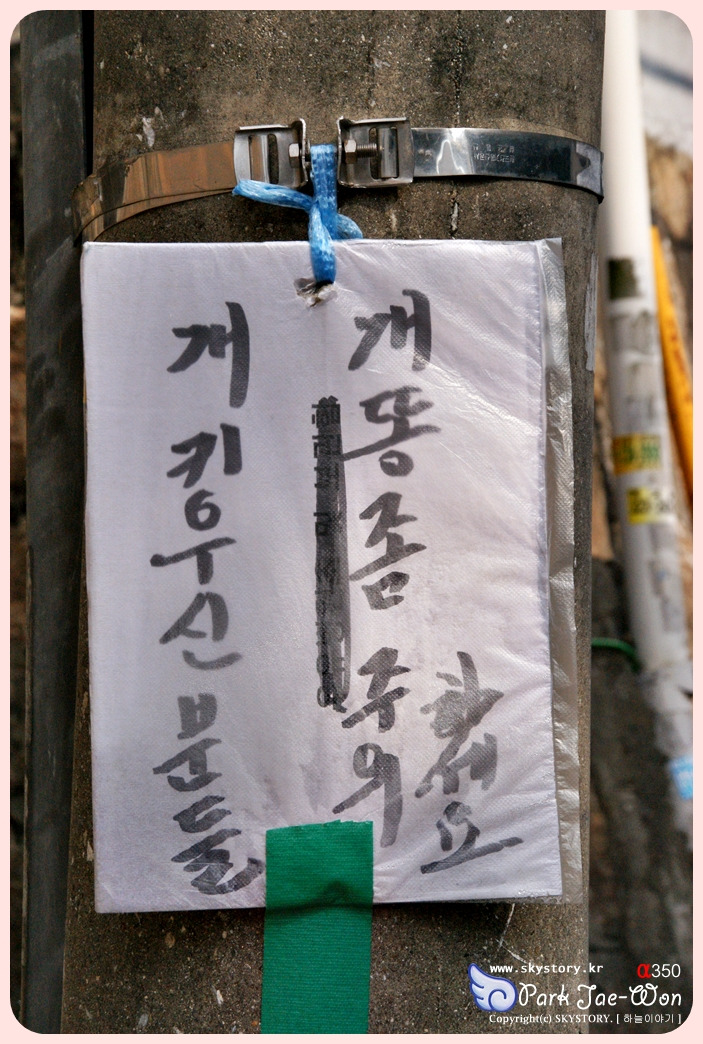 개 키우신 분들
개똥좀 주의
하세요
www.skystory.kr
α350
Park Jae-Won
Copyright(c) SKYSTORY. [ 하늘이야기 ]